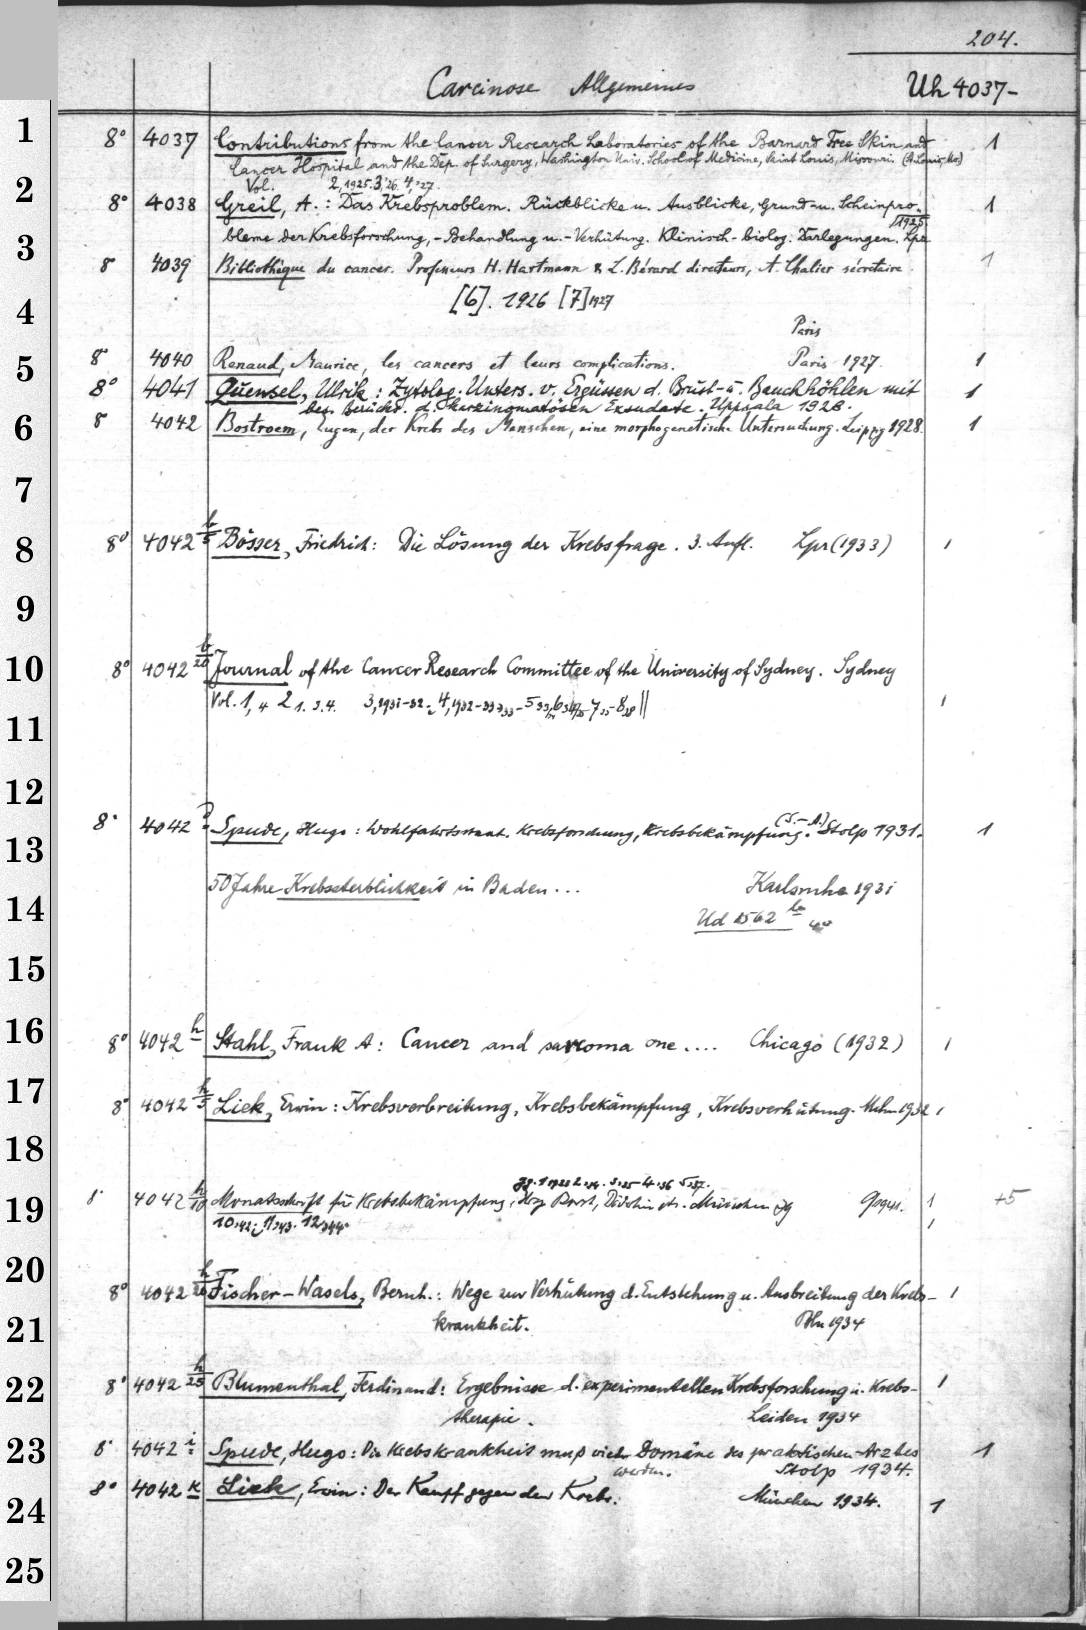 204.
Carcinose Allgemeines Uh 4037-
1
8° 4037 Contributions from the Cancer Research Laboratories of the Barnard Free Skin and 1
Cancer Hospital and the Dep. of Surgery, Washington Univ. School of Medicine, Saint Louis, Missouri. (St. Louis, Mo)
Vol. 2,1925. 3,'26. 4,'27.
2
8° 4038 Greil, A.: Das Krebsproblem. Rückblicke u. Ausblicke, Grund- u. Scheinpro- 1
1925
bleme der Krebsforschung, -Behandlung u. -Verhütung. Klinisch-biolog. Darlegungen. Lpz
3
8° 4039 Bibliothèque du cancer. Professeurs H. Hartmann & L. Bérard directeurs, A. Chalier sécretaire. 1
[6]. 1926 [7] 1927
4
Paris
5
8° 4040 Renaud, Maurice, les cancers et leurs complications. Paris 1927. 1
8° 4041 Quensel, Ulrik: Zytolog. Unters. v. Ergüssen d. Brust- u. Bauchhöhlen mit 1
bes. Berücks. d. karzinomatösen Exsudate. Uppsala 1928.
6
8° 4042 Bostroem, Eugen, der Krebs des Menschen, eine morphogenetische Untersuchung. Leipzig 1928. 1
7
8
8° 4042 b/5 Bösser, Friedrich: Die Lösung der Krebsfrage. 3. Aufl. Lpz (1933) 1
9
10
8° 4042 b/20 Journal of the Cancer Research Committee of the University of Sydney. Sydney
Vol. 1, 4 2 1. 3. 4. 3, 1931-32. 4, 1932-33 1
11
12
13
8° 4042 Spude, Hugo: Wohlfahrtsstaat. Krebsforschung, Krebsbekämpfung. (S.-A.) Stolp 1931. 1
50 Jahre Krebssterblichkeit in Baden ... Karlsruhe 1931
14
Ud 1562 b 4°
15
16
8° 4042 h Stahl, Frank A: Cancer and sarcoma one .... Chicago (1932) 1
17
8° 4042 h/5 Liek, Erwin: Krebsverbreitung, Krebsbekämpfung, Krebsverhütung. Mchn 1932 1
18
Jg. 1 1933 2,34. 3,35-4,36 5,37.
19
8° 4042 h/10 Monatsschrift für Krebsbekämpfung. Hrsg. München Jg 9,1941. 1 +5
10,42; 11,43. 12,1944. 1
20
8° 4042 h/20 Fischer-Wasels, Bernh.: Wege zur Verhütung d. Entstehung u. Ausbreitung der Krebs- 1
21
krankheit. Bln 1934
22
8° 4042 h/25 Blumenthal, Ferdinand: Ergebnisse d. experimentellen Krebsforschung u. Krebs- 1
therapie. Leiden 1934
23
8° 4042 i Spude, Hugo: Die Krebskrankheit muß wieder Domäne des praktischen Arztes 1
werden. Stolp 1934.
24
8° 4042 k Liek, Erwin: Der Kampf gegen den Krebs. München 1934. 1
25